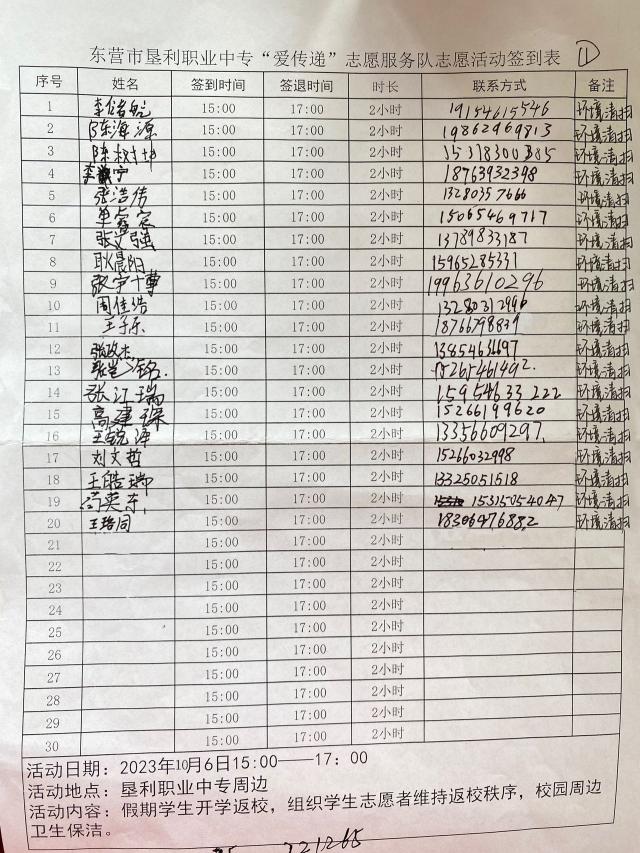 东营市垦利职业中专“爱传递”志愿服务队志愿活动签到表 ⑪
序号 姓名 签到时间 签退时间 时长 联系方式 备注
1 李储航 15:00 17:00 2小时 19154615546 环境清扫
2 陈海源 15:00 17:00 2小时 19862969813 环境清扫
3 陈树坤 15:00 17:00 2小时 15318300385 环境清扫
4 李 宁 15:00 17:00 2小时 18763932398 环境清扫
5 张浩伟 15:00 17:00 2小时 13280357666 环境清扫
6 单睿宗 15:00 17:00 2小时 15065469717 环境清扫
7 张文强 15:00 17:00 2小时 13789833187 环境清扫
8 耿晨阳 15:00 17:00 2小时 15965285331 环境清扫
9 张宇博 15:00 17:00 2小时 19963610296 环境清扫
10 周佳浩 15:00 17:00 2小时 13280312996 环境清扫
11 王子乐 15:00 17:00 2小时 18766798839 环境清扫
12 张政杰 15:00 17:00 2小时 13854636697 环境清扫
13 铭. 15:00 17:00 2小时 15265461492. 环境清扫
14 张江瑞 15:00 17:00 2小时 15954633222 环境清扫
15 高建琛 15:00 17:00 2小时 15266199620 环境清扫
16 王锐泽 15:00 17:00 2小时 13356609297. 环境清扫
17 刘文哲 15:00 17:00 2小时 15266032998 环境清扫
18 王皓瑞 15:00 17:00 2小时 13325051518 环境清扫
19 尚英东. 15:00 17:00 2小时 15315054047 环境清扫
20 王培同 15:00 17:00 2小时 18306476882 环境清扫
21 15:00 17:00 2小时
22 15:00 17:00 2小时
23 15:00 17:00 2小时
24 15:00 17:00 2小时
25 15:00 17:00 2小时
26 15:00 17:00 2小时
27 15:00 17:00 2小时
28 15:00 17:00 2小时
29 15:00 17:00 2小时
30 15:00 17:00 2小时
活动日期：2023年10月6日15:00——17：00
活动地点：垦利职业中专周边
活动内容：假期学生开学返校，组织学生志愿者维持返校秩序，校园周边
卫生保洁。